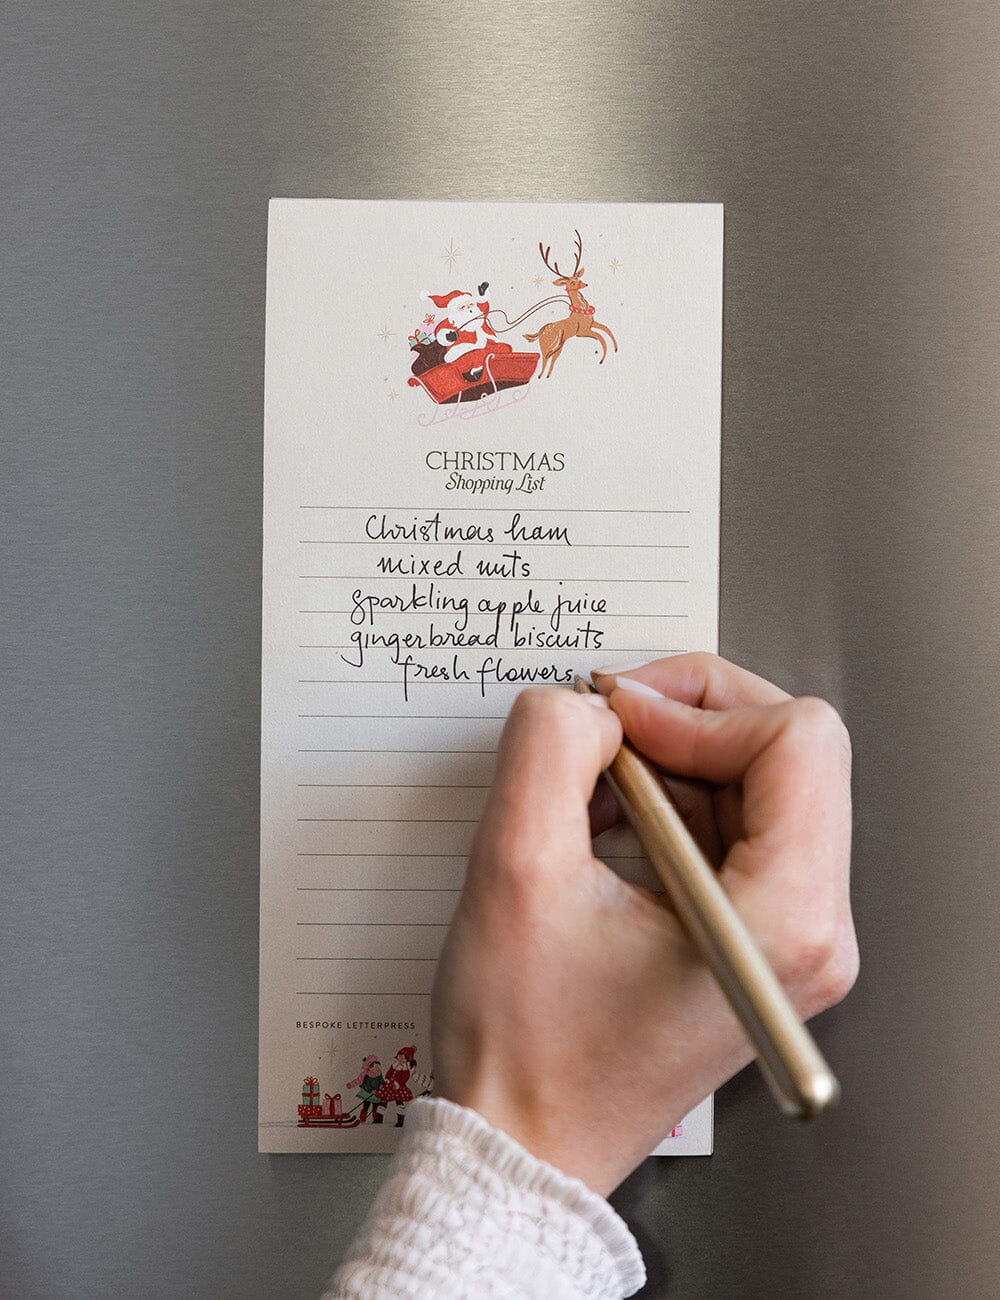 CHRISTMAS
Shopping List
Christmas ham
mixed nuts
sparkling apple juice
gingerbread biscuits
fresh flowers
BESPOKE LETTERPRESS